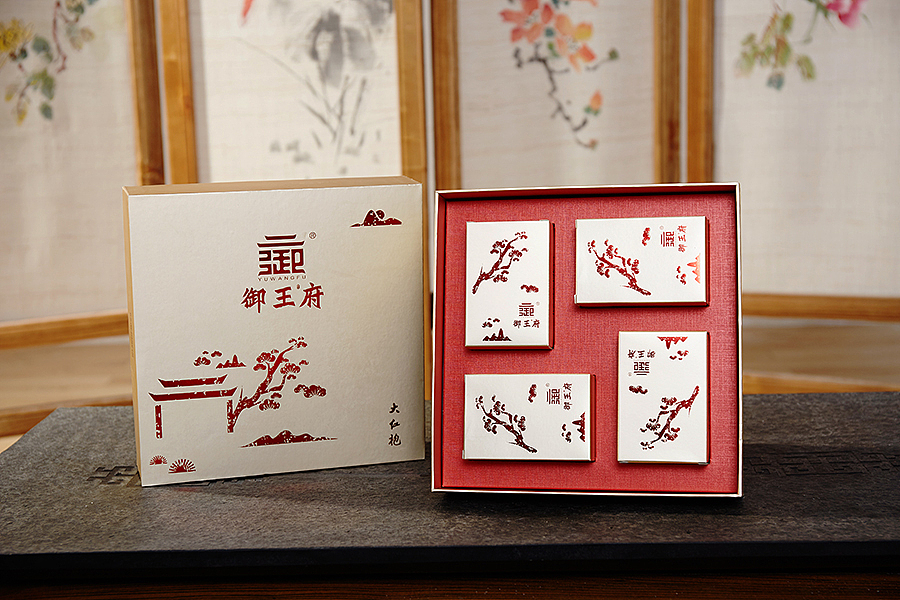 御
®
YUWANGFU
御王府
大红袍
御
御王府
御
御王府
御
御王府
御
御王府